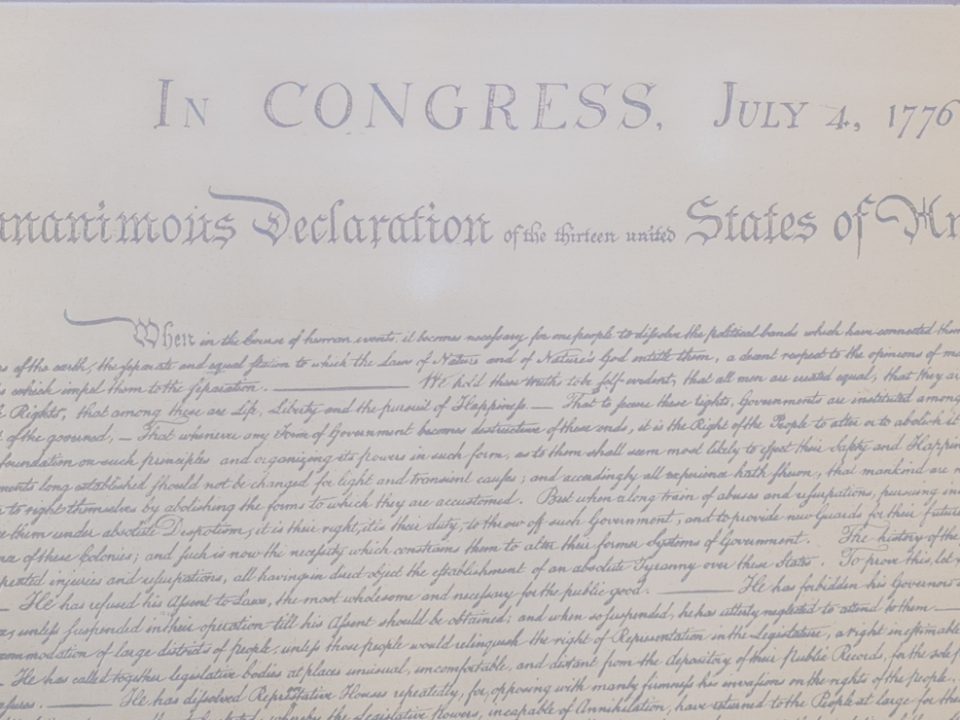 IN CONGRESS, JULY 4, 1776
unanimous Declaration of the thirteen united States of
When in the Course of human events, it becomes necessary for one people to dissolve the political bands which have connected them
of the earth, the separate and equal station to which the Laws of Nature and of Nature's God entitle them, a decent respect to the opinions of
which impel them to the separation. — We hold these truths to be self-evident, that all men are created equal, that they are
Rights, that among these are Life, Liberty and the pursuit of Happiness. — That to secure these rights, Governments are instituted among
of the governed, — That whenever any Form of Government becomes destructive of these ends, it is the Right of the People to alter or to abolish it
foundation on such principles and organizing its powers in such form, as to them shall seem most likely to effect their Safety and
long established should not be changed for light and transient causes; and accordingly all experience hath shewn, that mankind are
to right themselves by abolishing the forms to which they are accustomed. But when a long train of abuses and usurpations, pursuing
them under absolute Despotism, it is their right, it is their duty, to throw off such Government, and to provide new Guards for their future
of these Colonies; and such is now the necessity which constrains them to alter their former Systems of Government. The history of the
repeated injuries and usurpations, all having in direct object the establishment of an absolute Tyranny over these States. To prove this, let
— He has refused his Assent to Laws, the most wholesome and necessary for the public good. — He has forbidden his Governors
unless suspended in their operation till his Assent should be obtained; and when so suspended, he has utterly neglected to attend to them. —
of large districts of people, unless those people would relinquish the right of Representation in the Legislature, a right inestimable
— He has called together legislative bodies at places unusual, uncomfortable, and distant from the depository of their Public Records, for the sole
— He has dissolved Representative Houses repeatedly, for opposing with manly firmness his invasions on the rights of the people.
whereby the Legislative Powers, incapable of Annihilation, have returned to the People at large for